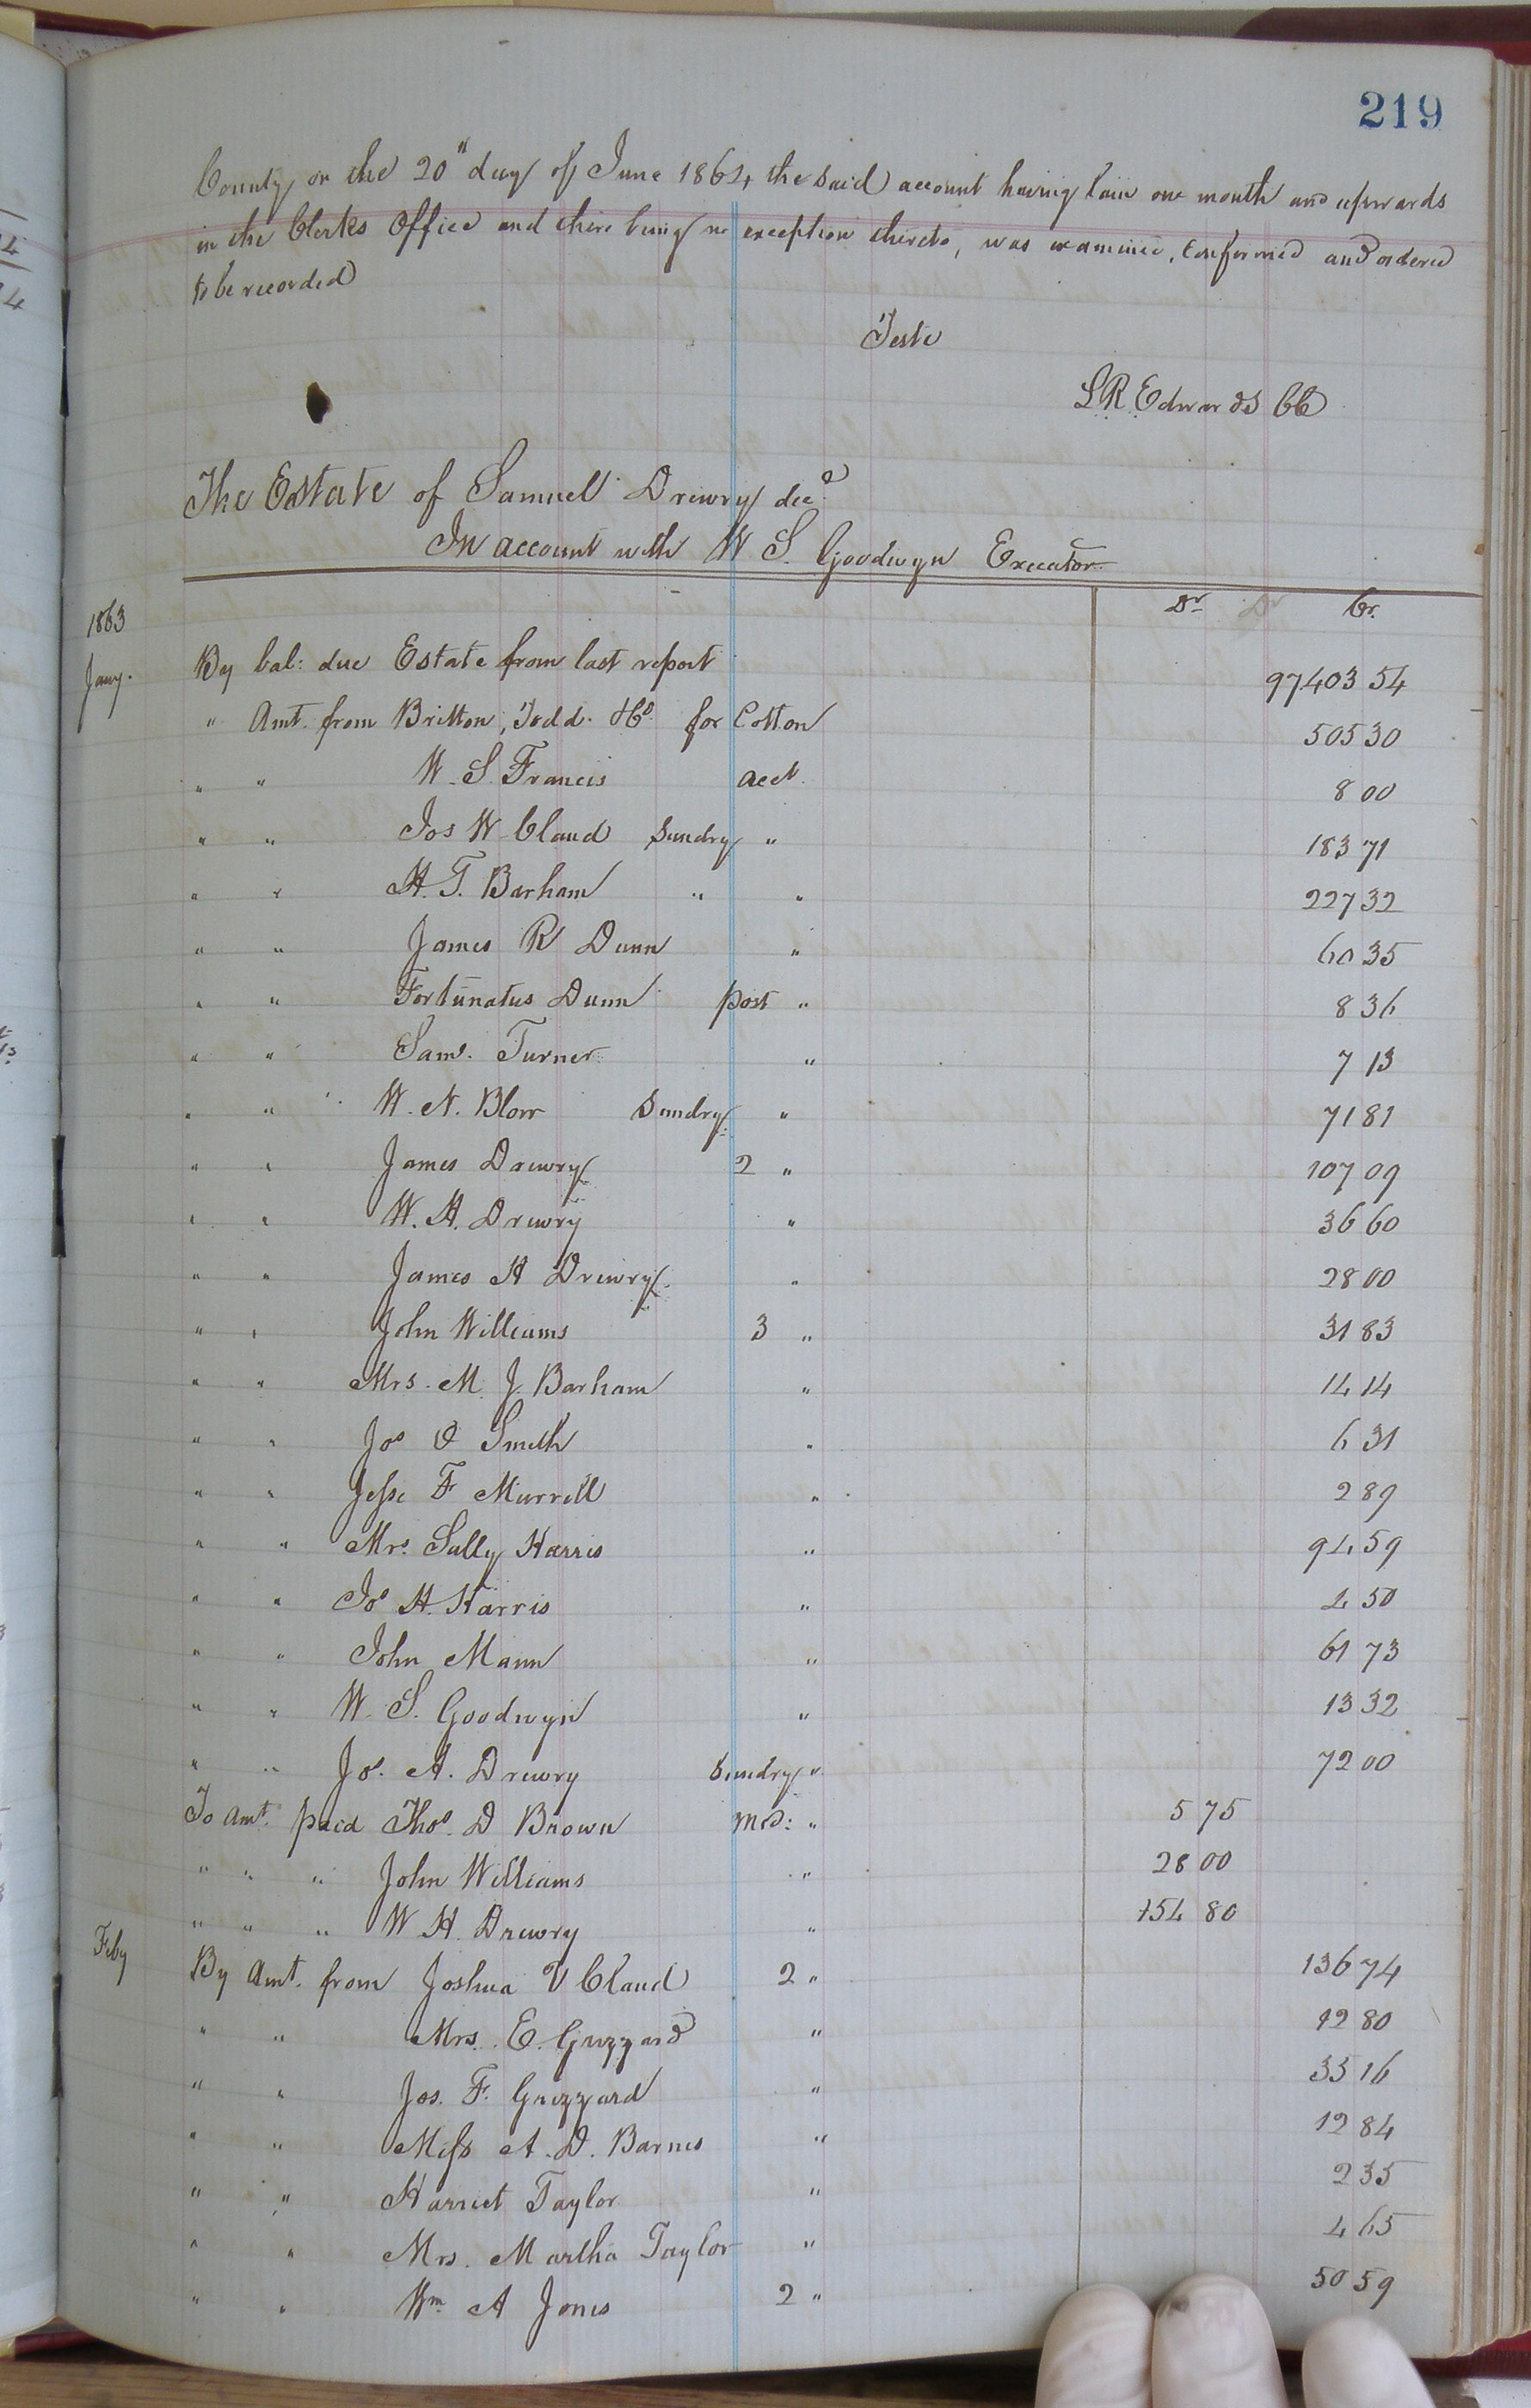 219
County on the 20" day of June 1864, the said account having lain one month and upwards
in the Clerks Office and there being no exception thereto, was examined, confirmed and ordered
to be recorded
Teste
L R Edwards CC
The Estate of Samuel Drewry decd
In account with W S. Goodwyn Executor
Dr Dr Cr.
1863
Jany. By bal: due Estate from last report 97403 54
" Amt. from Britton, Todd. & Co. for Cotton 505 30
" " W. S. Francis acct. 8 00
" " Jos W. Claud Sundry " 183 71
" " H. T. Barham " " 227 32
" " James R Dunn " 60 35
" " Fortunatus Dunn post " 8 36
" " Saml. Turner " 7 13
" " W. N. Blow Sundry " 71 81
" " James Drewry 2 " 107 09
" " W. H. Drewry " 36 60
" " James H Drewry " 28 00
" " John Williams 3 " 31 83
" " Mrs. M. J. Barham " 14 14
" " Jos Smith " 6 31
" " Jesse F Murrell " 2 89
" " Mrs. Sally Harris " 94 59
" " Jos H. Harris " 4 50
" " John Mann " 61 73
" " W. S. Goodwyn " 13 32
" " Jos. A. Drewry Sundry " 72 00
To amt. paid Thos. D Brown Med: " 5 75
" " " John Williams " 28 00
" " " W H. Drewry " 154 80
Feby By Amt. from Joshua V Claud 2 " 136 74
" " Mrs. E. Grizzard " 12 80
" " Jos. F. Grizzard " 35 16
" " Miss A. D. Barnes " 12 84
" " Harriet Taylor " 2 35
" " Mrs. Martha Taylor " 4 65
" " Wm A Jones 2 " 50 59